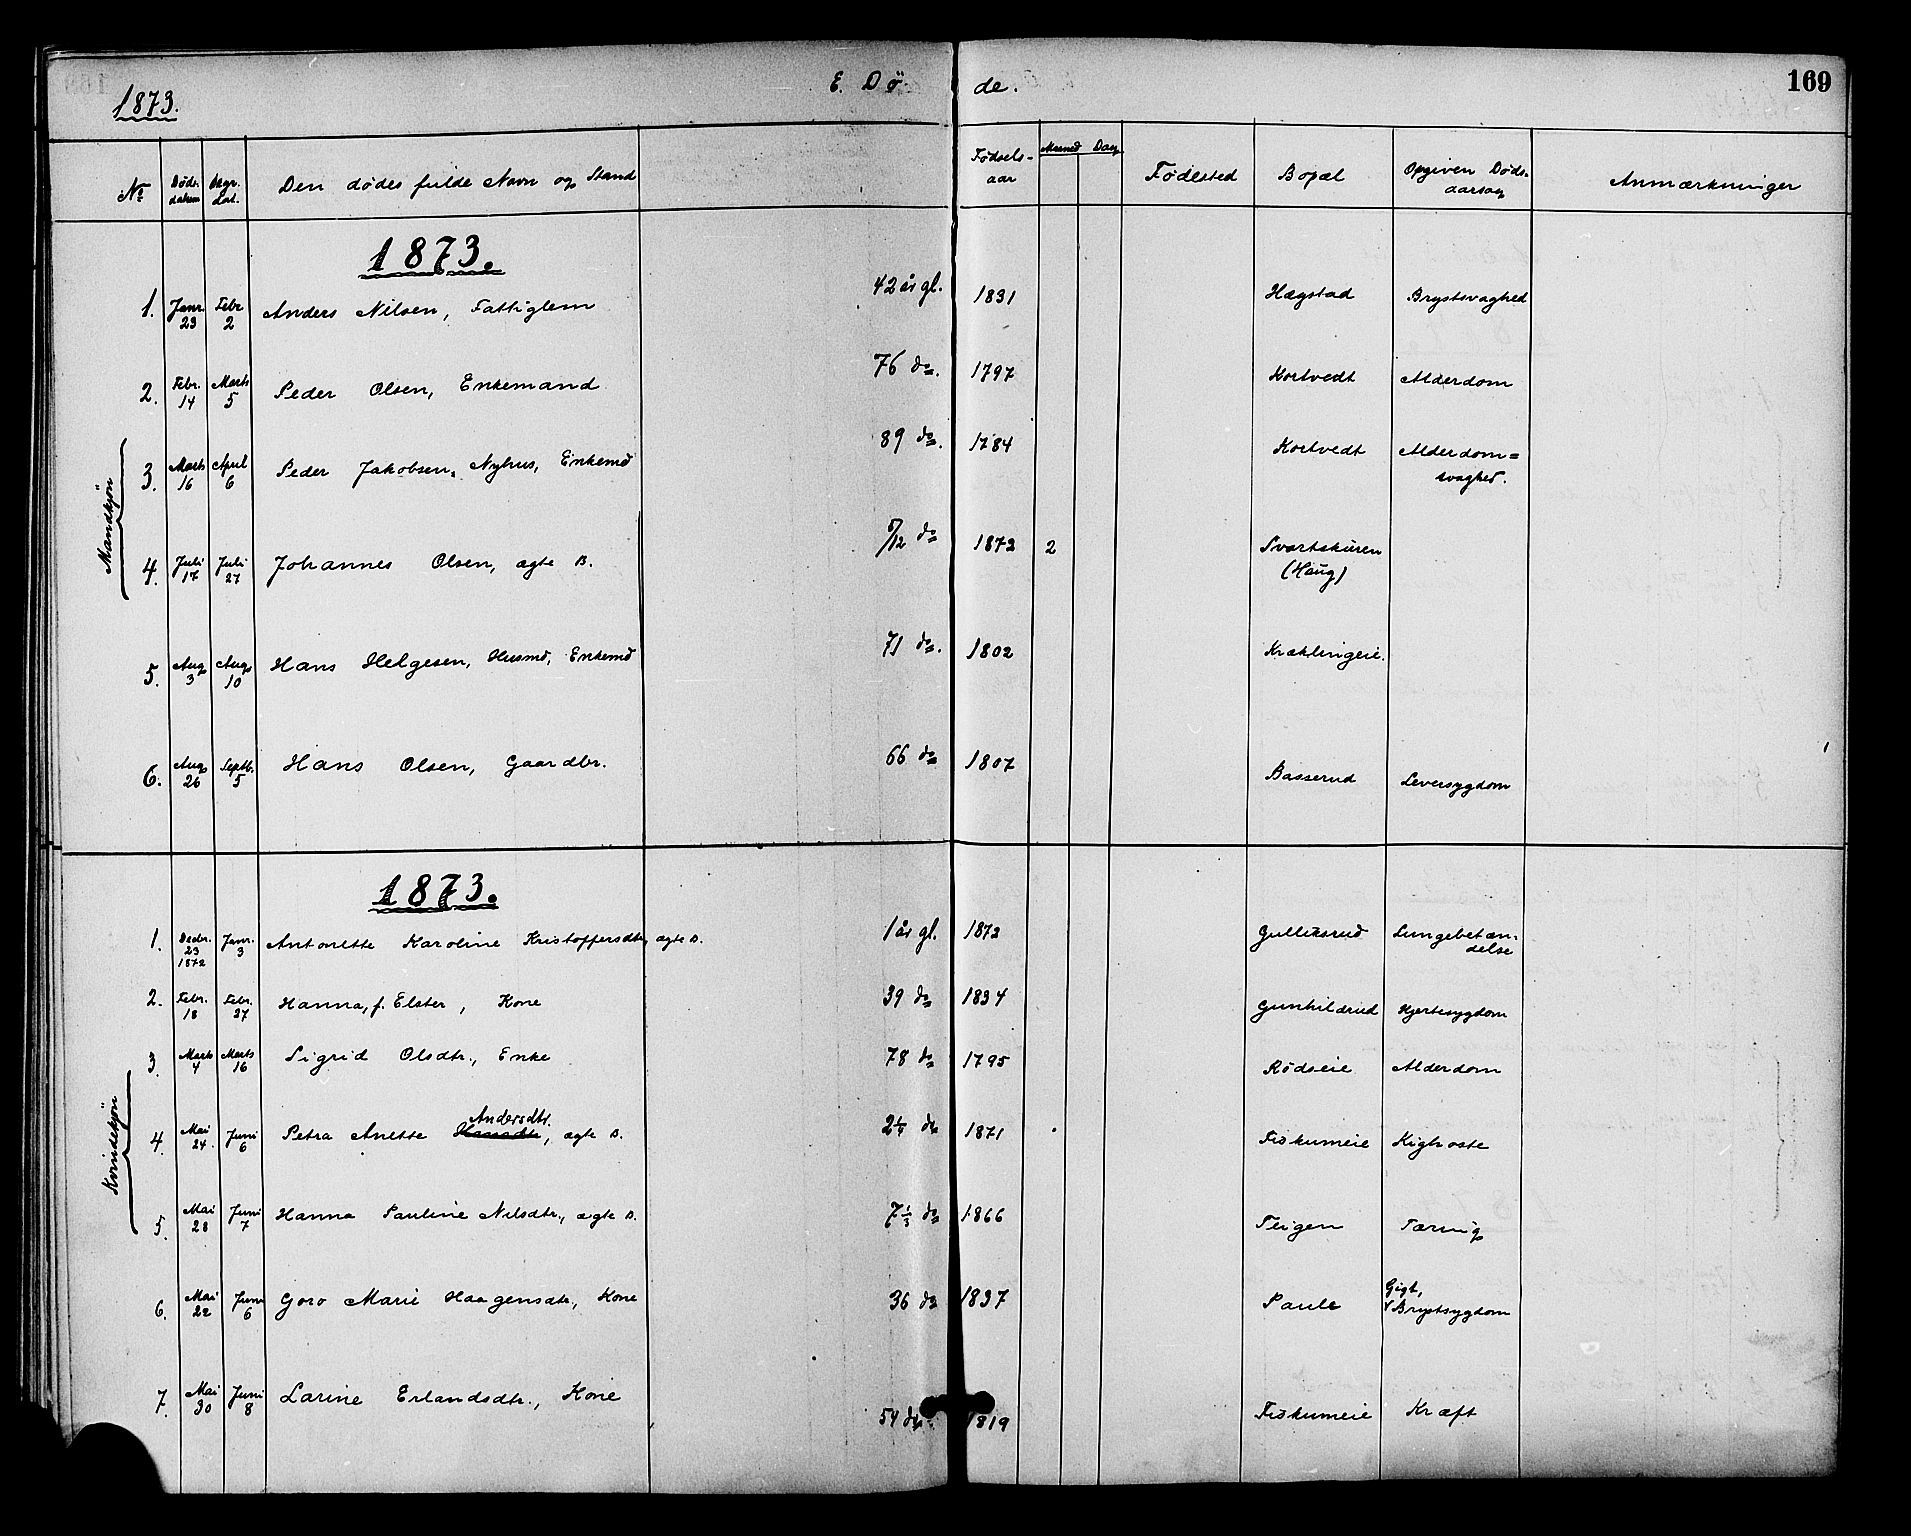 1873. E. Døde. 169
No Døds-datum Begr. dat. Den dødes fulde Navn og Stand Fødselsaar Maaned Dag Fødested Bopæl Opgiven Dødsaarsag Anmærkninger
Mandkjøn
1873.
1. Janr. 23 Febr 2 Anders Nilsen, Fattiglem 42 år gl. 1831 Hægstad Brystsvaghed
2. Febr. 14 Marts 5 Peder Olsen, Enkemand 76 do. 1797 Kortvedt Alderdom
3. Marts 16 April 6 Peder Jakobsen, Nyhus, Enkemd 89 do. 1784 Kortvedt Alderdom=svaghed.
4. Juli 17 Juli 27 Johannes Olsen, ægte B. 5/12 do 1873 2 Svartskuren (Haug)
5. Aug 3 Aug 10 Hans Helgesen, Husmd, Enkemd 71 do. 1802 Kræklingeie.
6. Aug 26 Septb. 5 Hans Olsen, Gaardbr. 66 do 1807 Basserud Leversygdom
Kvindekjøn
1873.
1. Decbr. 23 1872 Janr. 3 Antonette Karoline Kristoffersdtr, ægte B. 1 år gl. 1872 Gulliksrud Lungebetændelse
2. Febr. 18 Febr. 27 Hanna, f. Elster, Kone 39 do 1834 Gunhildrud Hjertesygdom
3. Marts 4 Marts 16 Sigrid Olsdtr., Enke 78 do 1795 Rødseie Alderdom
4. Mai 24. Juni 6 Petra Anette Hansdtr Andersdtr., ægte B. 2 1/4 do 1871 Fiskumeie Kighoste
5. Mai 28 Juni 7 Hanna Pauline Nilsdtr., ægte B. 7 1/3 do 1866 Teigen Tæring
6. Mai 22 Juni 6 Goro Marie Haagensdtr., Kone 36 do 1837 Paule Gigt, Brystsygdom
7. Mai 30 Juni 8 Larine Erlandsdtr., Kone 54 do 1819 Fiskumeie Kræft